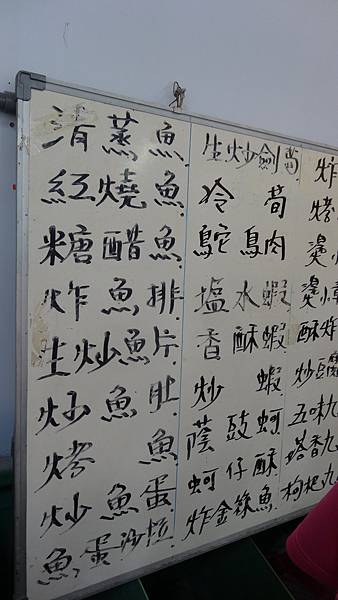 清蒸魚
紅燒魚
糖醋魚
炸魚排
生炒魚片
炒魚肚
烤魚
炒魚蛋
魚蛋沙拉
生炒劍筍
冷筍
鴕鳥肉
塩水蝦
香酥蝦
炒蝦
蔭豉蚵
蚵仔酥
炸金線魚
炸
烤
燙小
燙小
酥炸
炒豆腐
五味九
塔香九
枸杞九